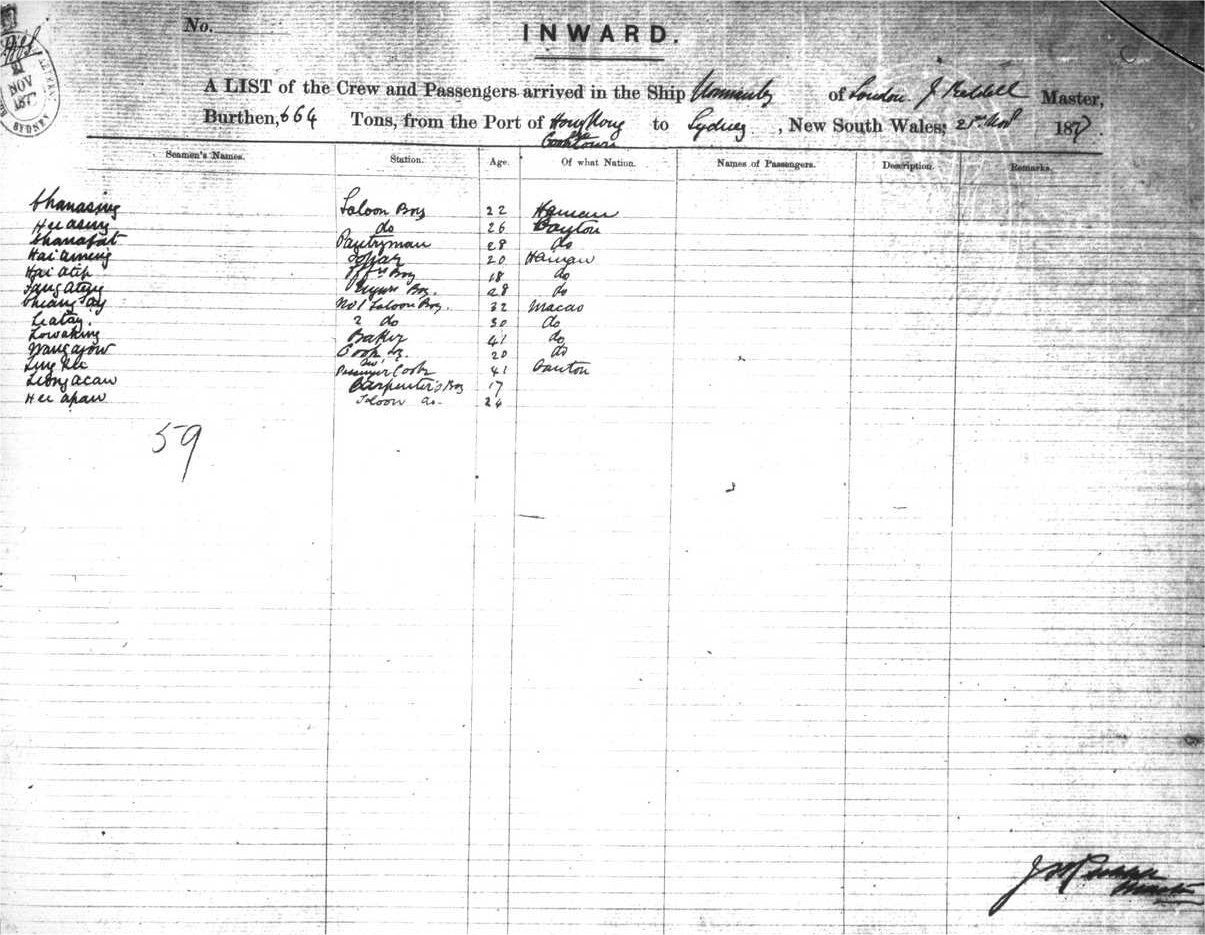 No.
INWARD.
21
NOV
187
SYDNEY
A LIST of the Crew and Passengers arrived in the Ship of London J Master,
Burthen, 664 Tons, from the Port of Hong Kong to Sydney, New South Wales, 21st Novr 1877.
Cooktown
Seamen's Names. Station. Age. Of what Nation. Names of Passengers. Description. Remarks.
Chanasing Saloon Boy 22 Hainan
Hee asing do 26 Canton
Chanafat Pantryman 28 do
Hai aming 20 Hainan
Hai atip Boy 18 do
Boy. 28 do
No 1 Saloon Boy. 32 Macao
Leatag. 2 do 30 do
Lowaking Baker 41 do
Wangayow Cook 20 do
Ling Kee Passenger Cook 41 Canton
Leong acaw Carpenter's Boy 17
Hee apaw Saloon do. 24
59
Master